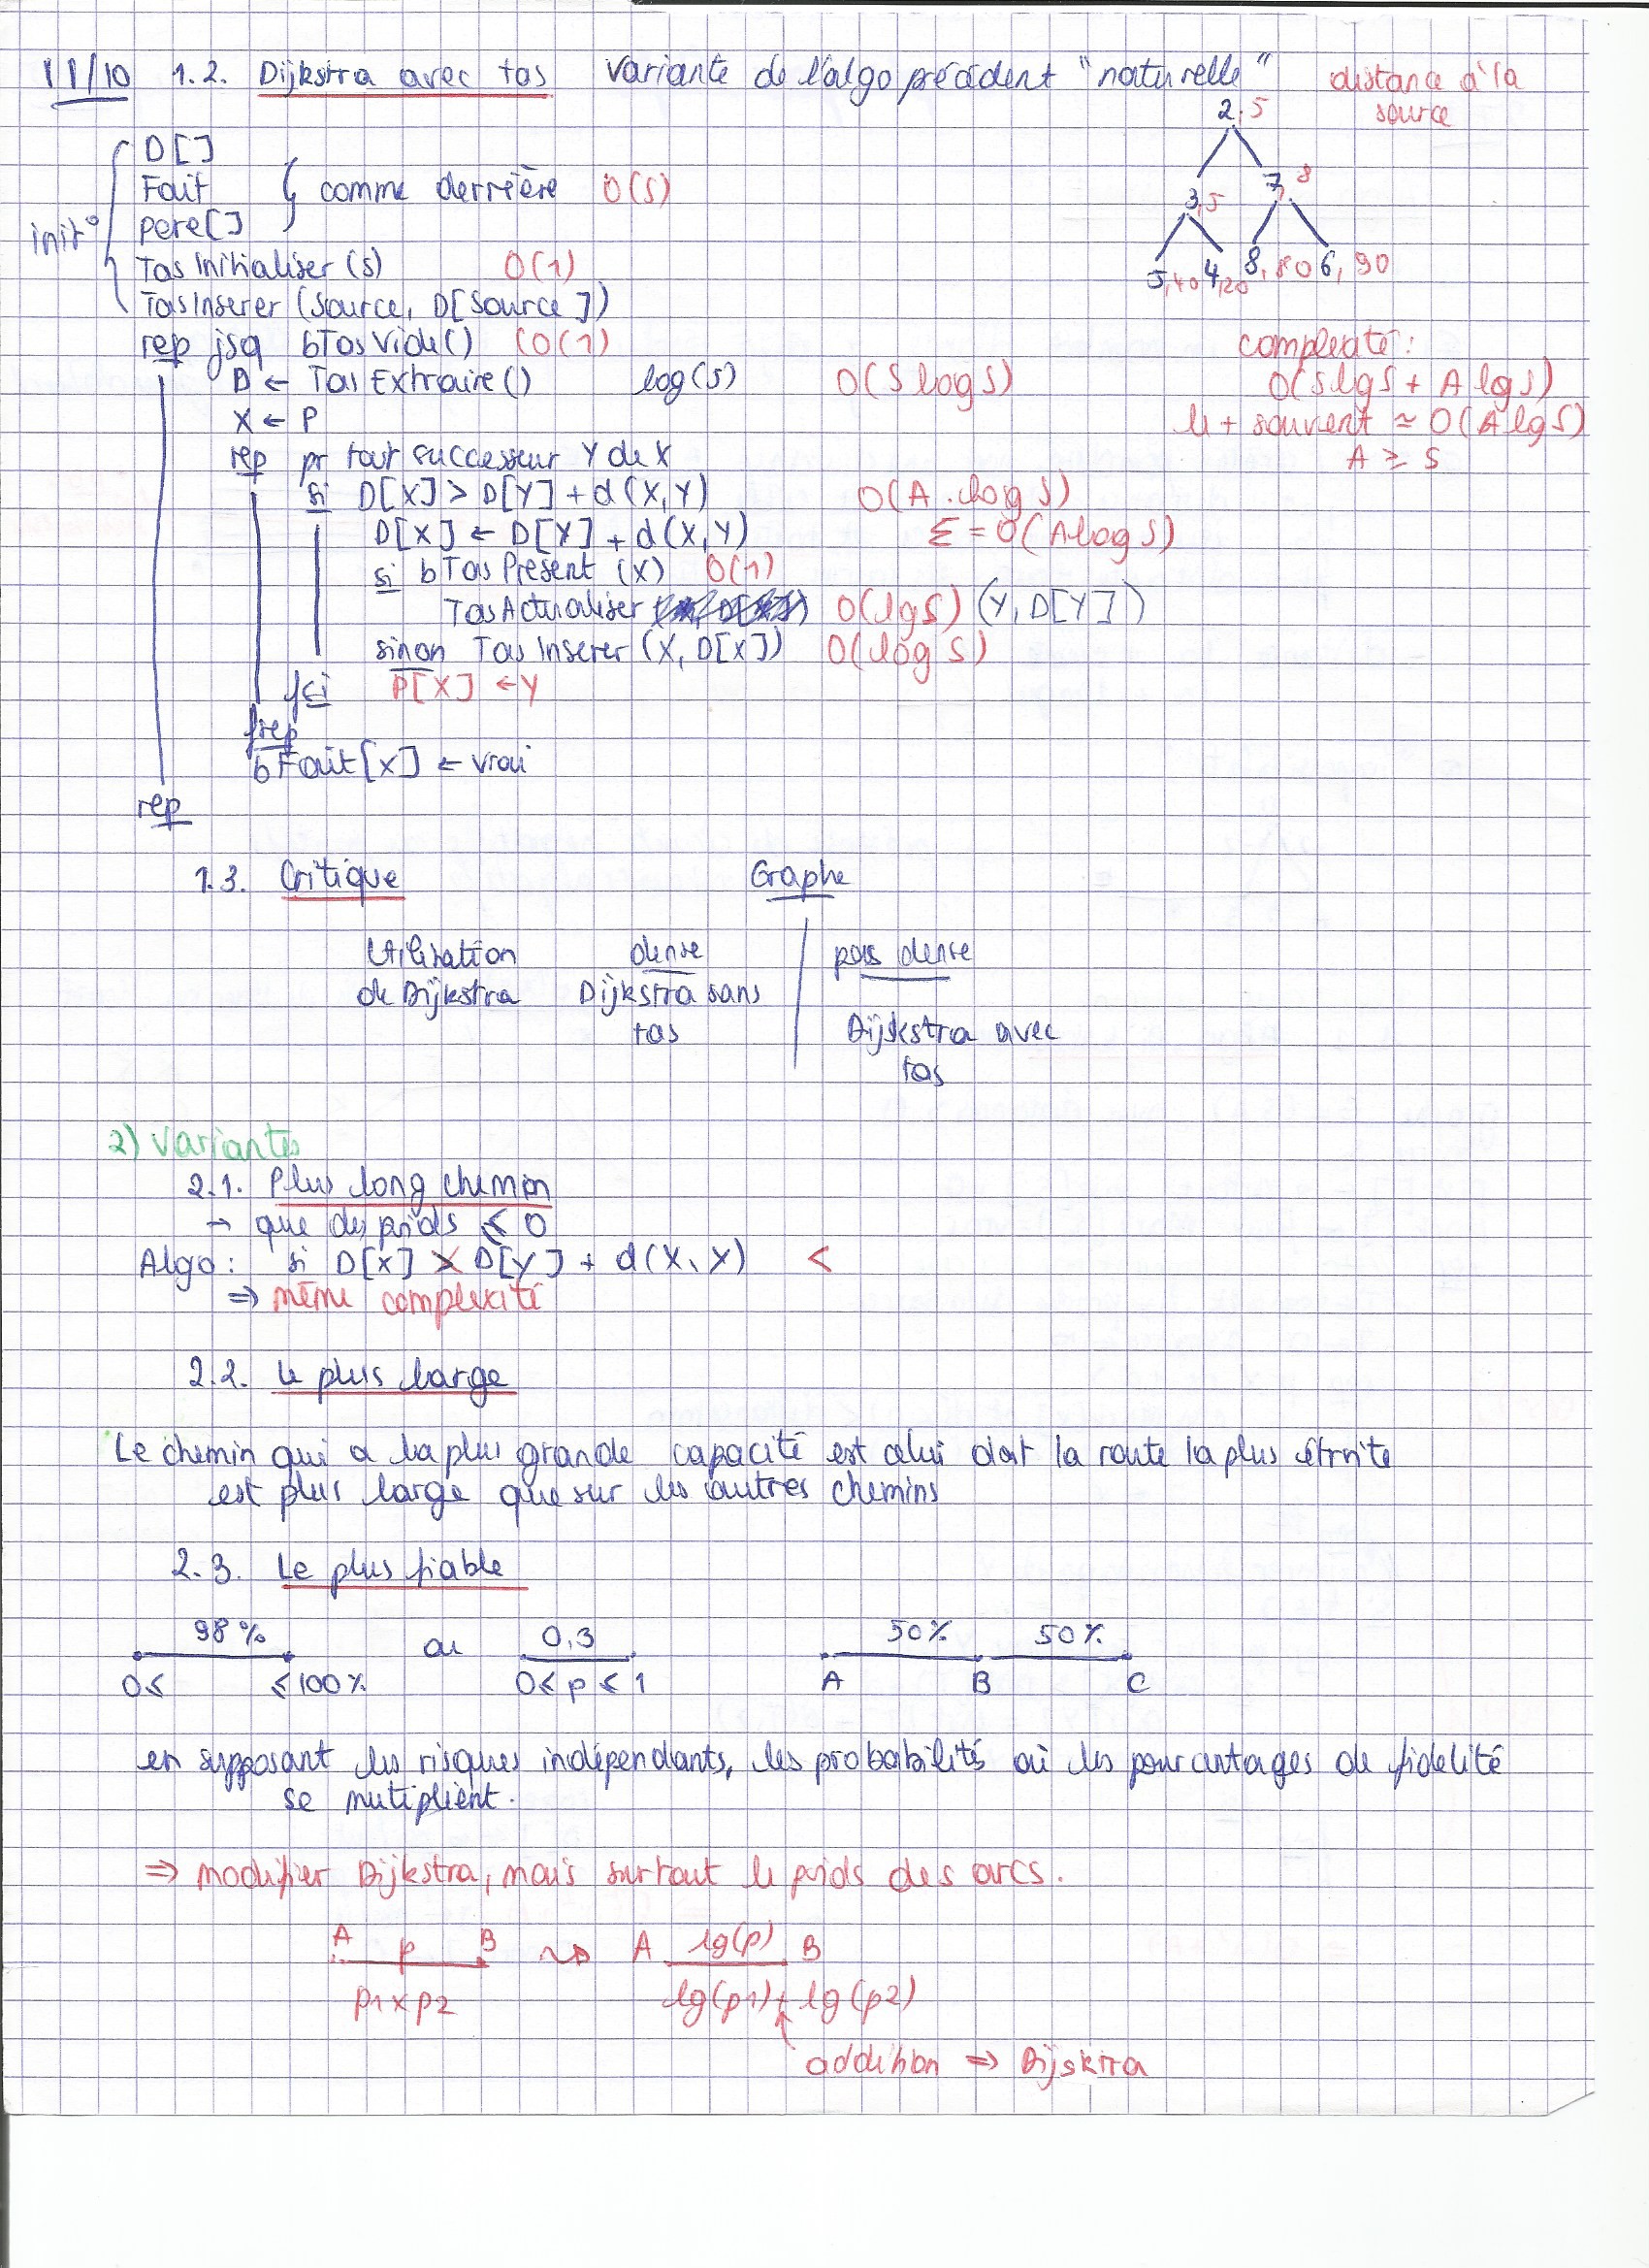 11/10 1.2. Dijkstra avec tas variante de l'algo précédent "naturelle"
distance à la
source
2,5
3,5 7,8
5,40 4,20 8,80 6,90
init°
D[]
Fait
pere[]
comme derrière O(S)
Tas Initialiser (s) O(1)
Tas Inserer (Source, D[Source])
rep jsq bTasVide() (O(1)
D ← Tas Extraire() log(s) O(S log S)
X ← P
rep pr tout successeur Y de X
si D[X] > D[Y] + d(X,Y) O(A.log S)
D[X] ← D[Y] + d(X,Y) Σ = O(A log S)
si bTas Présent (X) O(1)
Tas Actualiser O(lg S) (Y, D[Y])
sinon Tas Inserer (X, D[X]) O(log S)
fsi P[X] ← Y
frep
bFait[X] ← vrai
rep
complexité :
O(S lg S + A lg S)
le + souvent ≃ O(A lg S)
A ≥ S
1.3. Critique Graphe
Utilisation dense pas dense
de Dijkstra Dijkstra sans
tas Dijkstra avec
tas
2) Variantes
2.1. Plus long chemin
→ que des poids ≤ 0
Algo : si D[X] > D[Y] + d(X,Y) <
⇒ même complexité
2.2. Le plus large
Le chemin qui a la plus grande capacité est celui dont la route la plus étroite
est plus large que sur les autres chemins
2.3. Le plus fiable
98 % ou 0,3 50% 50%
0≤ ≤100% 0≤ p ≤ 1 A B C
en supposant les risques indépendants, les probabilités où les pourcentages de fidelité
se mutiplient.
⇒ modifier Dijkstra, mais surtout le poids des arcs.
A p B ⇝ A lg(p) B
p1 x p2 lg(p1) + lg(p2)
addition ⇒ Dijskrra